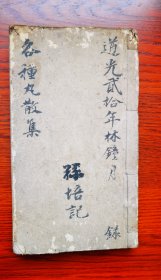 道光貳拾年林鐘月 錄
各種丸散集
孫培記